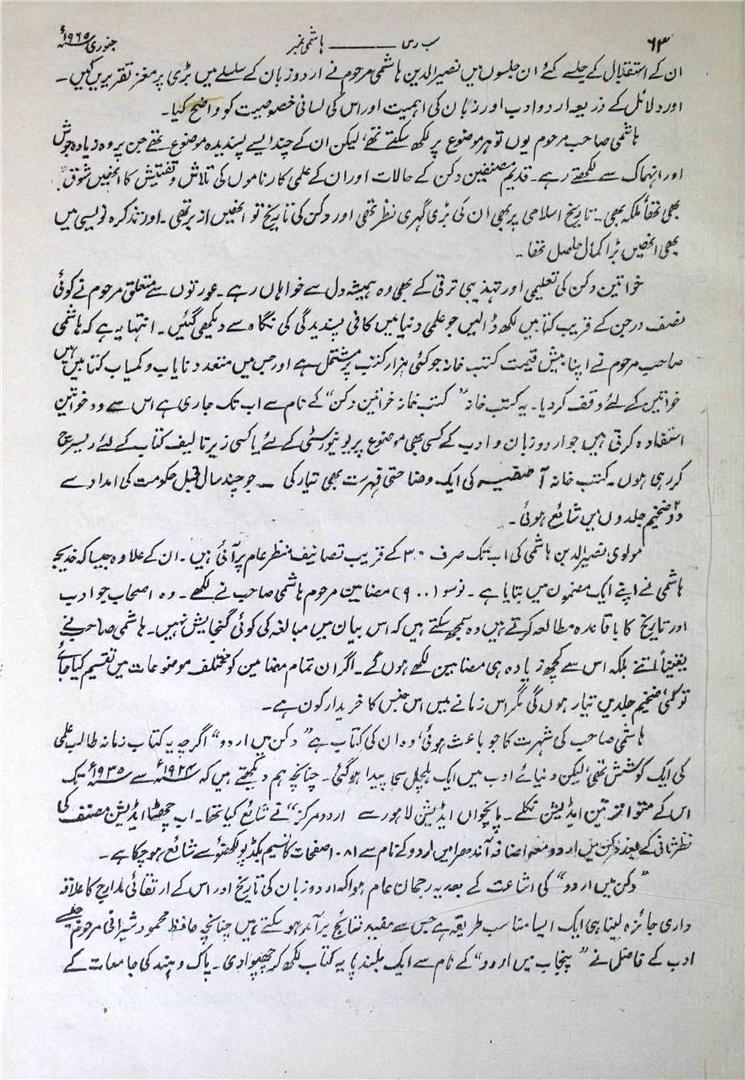 ۶۳ سب رس ــــــــ ہاشمی نمبر جنوری ۱۹۶۵ء
ان کے استقبال کے جلسے کئے ان جلسوں میں نصیرالدین ہاشمی مرحوم نے اردو زبان کے سلسلے میں بڑی پر مغز تقریریں کیں۔
اور دلائل کے ذریعہ اردو ادب اور زبان کی اہمیت اور اس کی لسانی خصوصیت کو واضح کیا۔
ہاشمی صاحب مرحوم یوں تو ہر موضوع پر لکھ سکتے تھے لیکن ان کے چند ایسے پسندیدہ موضوع تھے جن پر وہ زیادہ جوش
اور انہماک سے لکھتے رہے۔ قدیم مصنفین دکن کے حالات اور ان کے علمی کارناموں کی تلاش و تفتیش کا انھیں شوق
بھی تھا ملکہ بھی۔ تاریخ اسلامی پر بھی ان کی بڑی گہری نظر تھی اور دکن کی تاریخ تو انھیں ازبر تھی۔ اور تذکرہ نویسی میں
بھی انھیں بڑا کمال حاصل تھا۔
خواتین دکن کی تعلیمی اور تہذیبی ترقی کے بھی وہ ہمیشہ دل سے خواہاں رہے۔ عورتوں سے متعلق مرحوم نے کوئی
نصف درجن کے قریب کتابیں لکھ ڈالیں جو علمی دنیا میں کافی پسندیدگی کی نگاہ سے دیکھی گئیں۔ انتہا یہ ہے کہ ہاشمی
صاحب مرحوم نے اپنا بیش قیمت کتب خانہ جو کئی ہزار کتب پر مشتمل ہے اور جس میں متعدد نایاب و کمیاب کتابیں ہیں
خواتین کے لئے وقف کردیا۔ یہ کتب خانہ "کتب خانہ خواتین دکن" کے نام سے اب تک جاری ہے اس سے وہ خواتین
استفادہ کرتی ہیں جو اردو زبان و ادب کے کسی بھی موضوع پر یونیورسٹی کے لئے یا کسی زیر تالیف کتاب کے لئے ریسرچ
کررہی ہوں۔ کتب خانہ آصفیہ کی ایک وضاحتی فہرست بھی تیار کی ۔ جو چند سال قبل حکومت کی امداد سے
دو ضخیم جلدوں میں شائع ہوئی۔
مولوی نصیرالدین ہاشمی کی اب تک صرف ۳۰ کے قریب تصانیف منظر عام پر آئی ہیں۔ ان کے علاوہ جیسا کہ خدیجہ
ہاشمی نے اپنے ایک مضمون میں بتایا ہے۔ نوسو (۹۰۰) مضامین مرحوم ہاشمی صاحب نے لکھے۔ وہ اصحاب جو ادب
اور تاریخ کا باقاعدہ مطالعہ کرتے ہیں وہ سمجھ سکتے ہیں کہ اس بیان میں مبالغہ کی کوئی گنجایش نہیں۔ ہاشمی صاحب نے
یقیناً اتنے بلکہ اس سے کچھ زیادہ ہی مضامین لکھے ہوں گے۔ اگر ان تمام مضامین کو مختلف موضوعات میں تقسیم کیا جائے
تو کئی ضخیم جلدیں تیار ہوں گی مگر اس زمانے میں اس جنس کا خریدار کون ہے۔
ہاشمی صاحب کی شہرت کا جو باعث ہوئی، وہ ان کی کتاب ہے "دکن میں اردو" اگرچہ یہ کتاب زمانہ طالب علمی
کی ایک کوشش تھی لیکن دنیائے ادب میں ایک ہلچل سی پیدا ہوگئی۔ چنانچہ ہم دیکھتے ہیں کہ ۱۹۲۴ء سے ۱۹۳۵ء تک
اس کے متواتر تین ایڈیشن نکلے۔ پانچواں ایڈیشن لاہور سے اردو مرکز" نے شائع کیا تھا۔ اب چھٹا ایڈیشن مصنف کی
نظر ثانی کے بعد دکن میں اردو معہ اضافہ آندھرا میں اردو کے نام سے ۸۱۰ صفحات کا نسیم بکڈپو لکھنؤ سے شائع ہوچکا ہے۔
"دکن میں اردو" کی اشاعت کے بعد یہ رجحان عام ہوا کہ اردو زبان کی تاریخ اور اس کے ارتقائی مدارج کا علاقہ
داری جائزہ لینا ہی ایک ایسا مناسب طریقہ ہے جس سے مفید نتائج برآمد ہوسکتے ہیں چنانچہ حافظ محمود شیرانی مرحوم جیسے
ادب کے فاضل نے "پنجاب میں اردو" کے نام سے ایک بلند پایہ کتاب لکھ کر چھپوادی۔ پاک و ہند کی جامعات کے